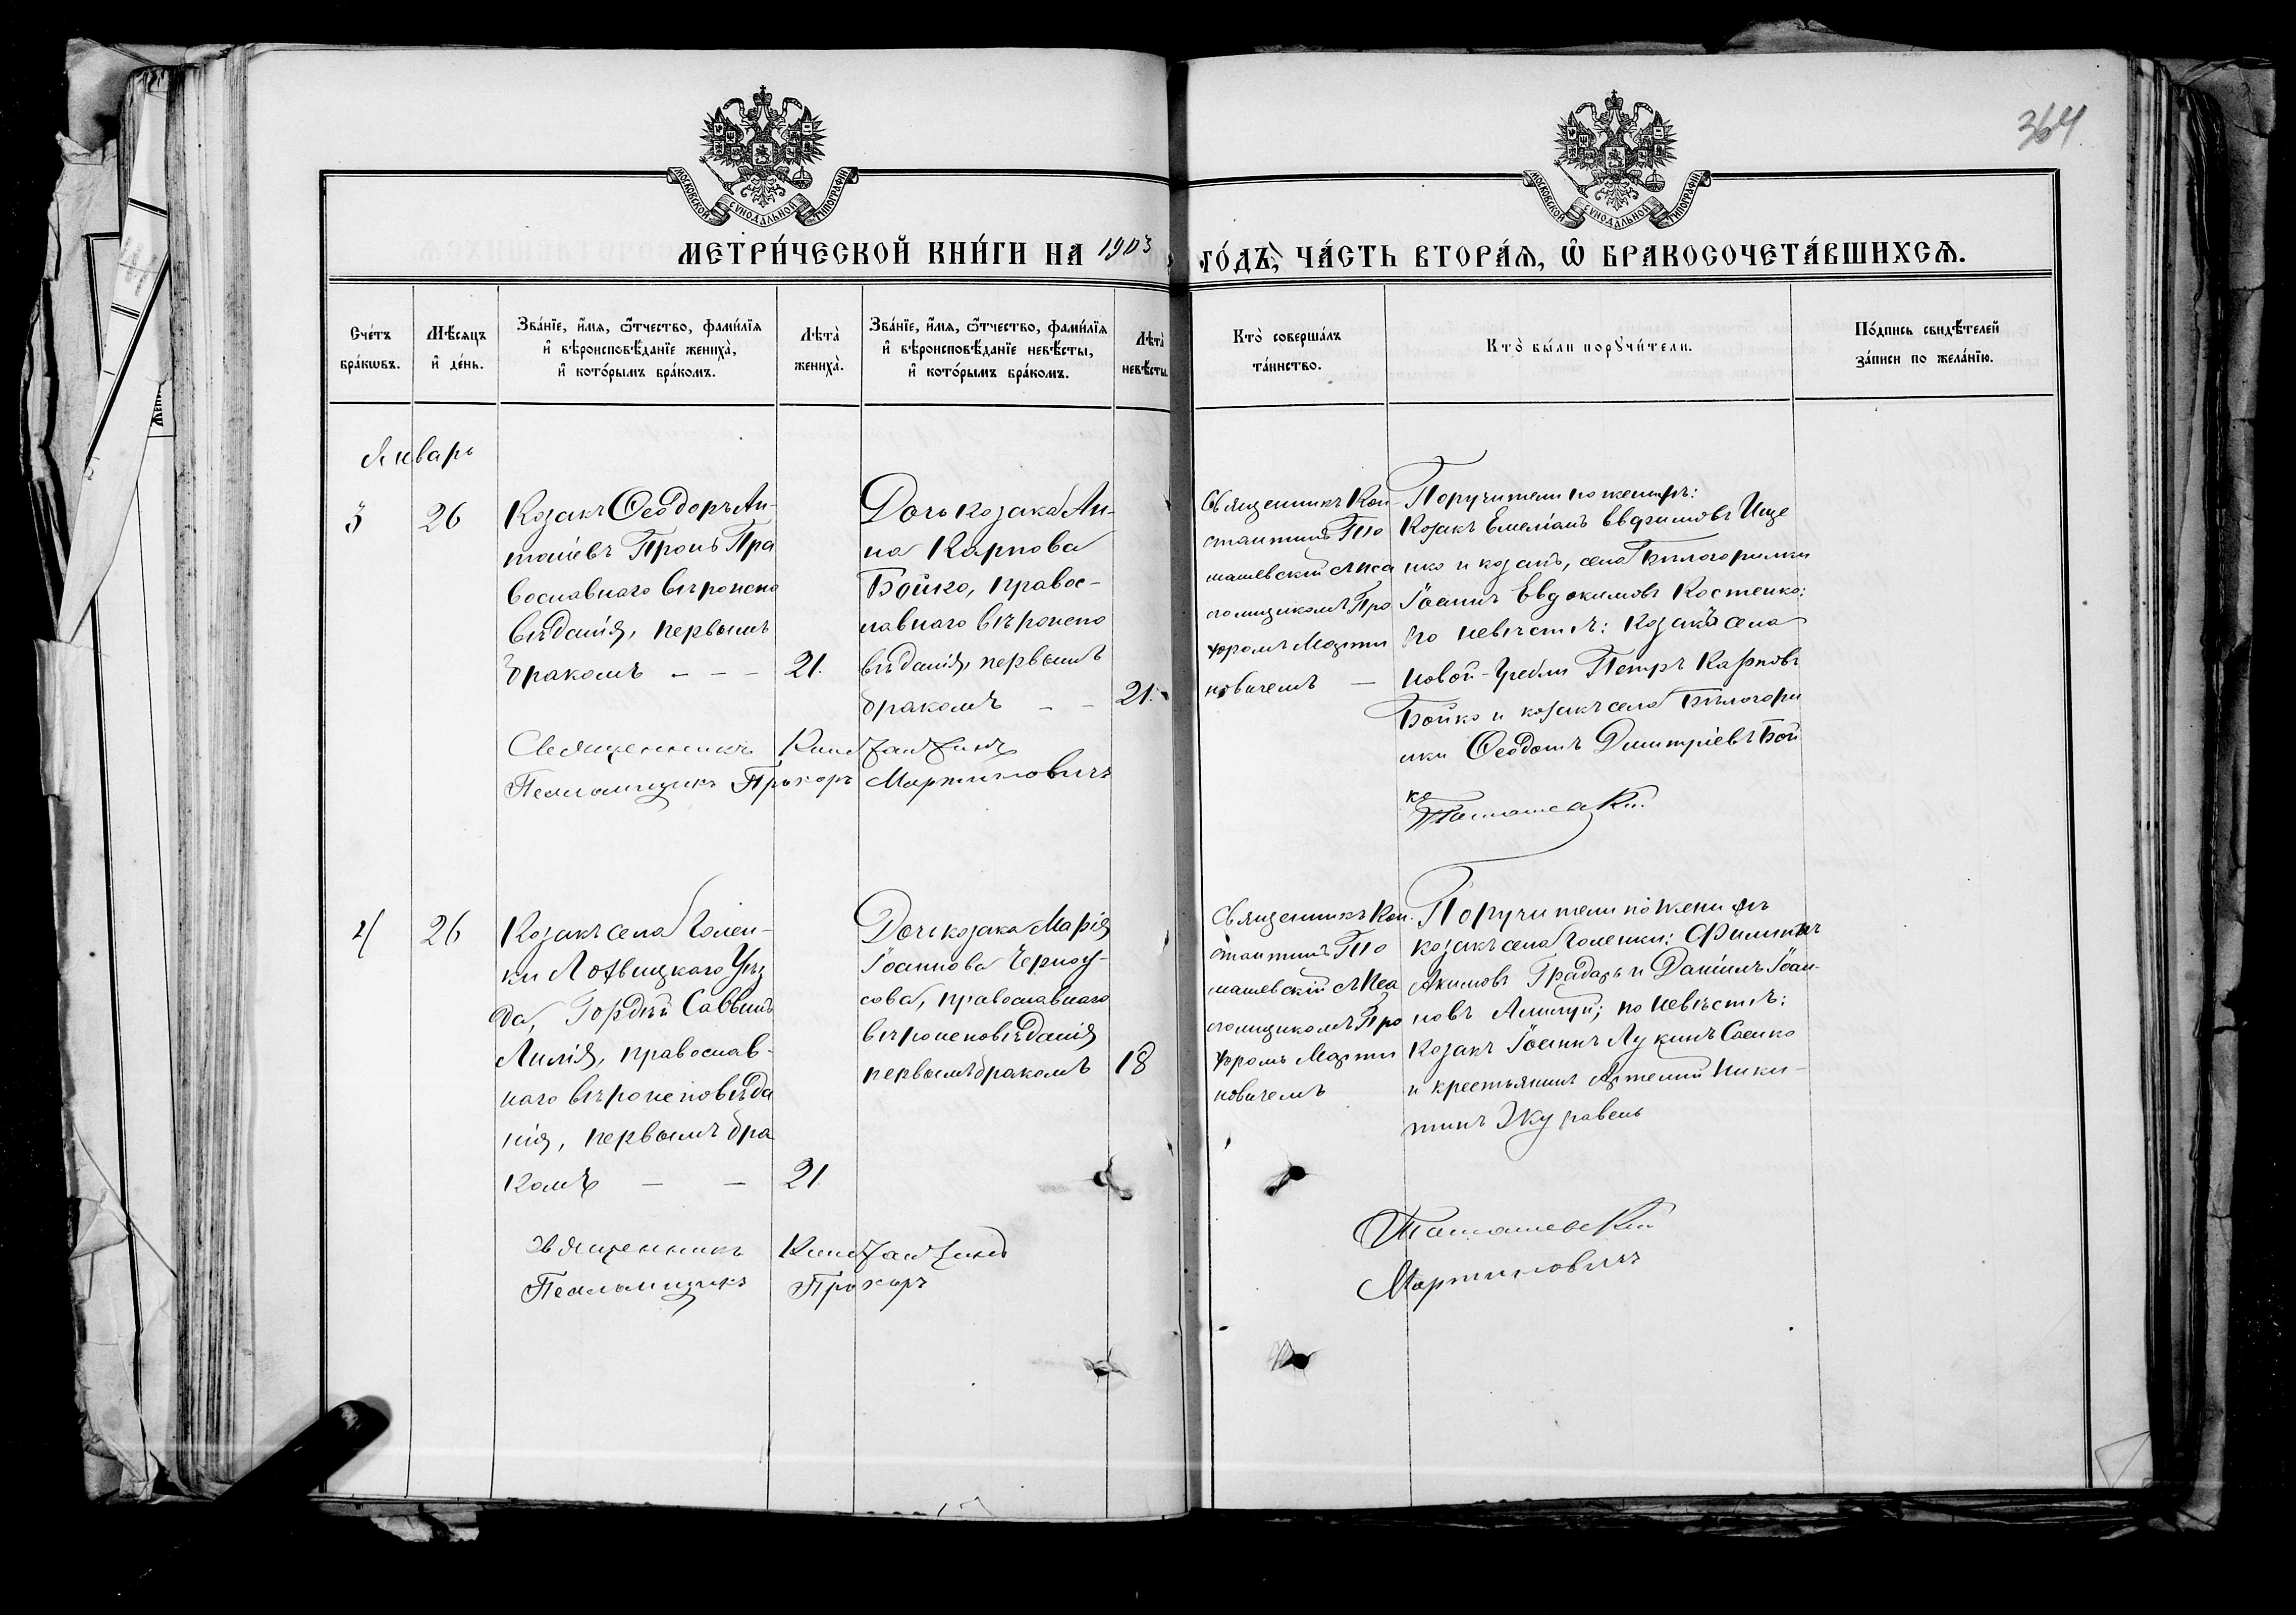 364
МОСКОВСКОЙ СУНОДАЛЬНОЙ ТИПОГРАФІИ
МОСКОВСКОЙ СУНОДАЛЬНОЙ ТИПОГРАФІИ
МЕТРИ́ЧЕСКОЙ КНИ́ГИ НА 1903 ГО́ДЪ, ЧА́СТЬ ВТОРА́Ѧ, Ѡ҆ БРАКОСОЧЕТА́ВШИХСѦ.
Сче́тъ
бра́кѡвъ.
Мѣ́сяцъ
и҆ де́нь.
Зва́нїе, и҆́мя, ѻ҆́тчество, фами́лїя
и҆ вѣроисповѣ́данїе жениха̀,
и҆ кото́рымъ бра́комъ.
Лѣта̀
жениха̀.
Зва́нїе, и҆́мя, ѻ҆́тчество, фами́лїя
и҆ вѣроисповѣ́данїе невѣ́сты,
и҆ кото́рымъ бра́комъ.
Лѣта̀
невѣ́сты.
Кто̀ соверша́лъ
та́инство.
Кто̀ бы́ли порꙋчи́тели.
По́дпись свидѣ́телей
за́писи по жела́нїю.
Январь
3
26
Козакъ Ѳеодоръ Ан-
тоніевъ Пронь Пра
вославнаго вѣроиспо
вѣданія, первымъ
бракомъ - - -
21.
Дочь козака Ан-
на Карпова
Бойко, правос-
лавнаго вѣроиспо
вѣданія, первымъ
бракомъ - -
21.
Священникъ Кон
стантинъ
машевскій съ Пса
ломщикомъ Про
хоромъ Марти
новичемъ -
Поручители по женихѣ:
Козакъ Емеліанъ Евфимовъ Ище
нко и козакъ, села Бѣлогорилки
Іоаннъ Евдокимовъ Костенко:
по невѣстѣ: Козакъ села
Новой-Гребли Петръ Карповъ
Бойко и козакъ села Бѣлогори
лки Ѳеодотъ Димитріевъ Бой
ко
Священникъ Константинъ
Псаломщикъ Прохоръ Мартиновичъ
4
26
Козакъ села Голен-
ки Лохвицкаго Уѣз
да, Гордѣй Саввинъ
Лилія, православ-
наго вѣроисповѣда
нія, первымъ бра
комъ - -
21.
Дочь козака Марія
Іоаннова Черноу-
сова, православнаго
вѣроисповѣданія
первымъ бракомъ
18
Священникъ Кон-
стантинъ
машевскій съ Пса
ломщикомъ Про
хоромъ Марти
новичемъ
Поручители по женихѣ
козакъ села Голенки: Филиппъ
Акимовъ и Даніилъ Іоан-
новъ по невѣстѣ:
Козакъ Іоаннъ Лукинъ Саенко
и крестьянинъ Артемій Ники-
тинъ Журавель
Священникъ Константинъ
Псаломщикъ Прохоръ Мартиновичъ